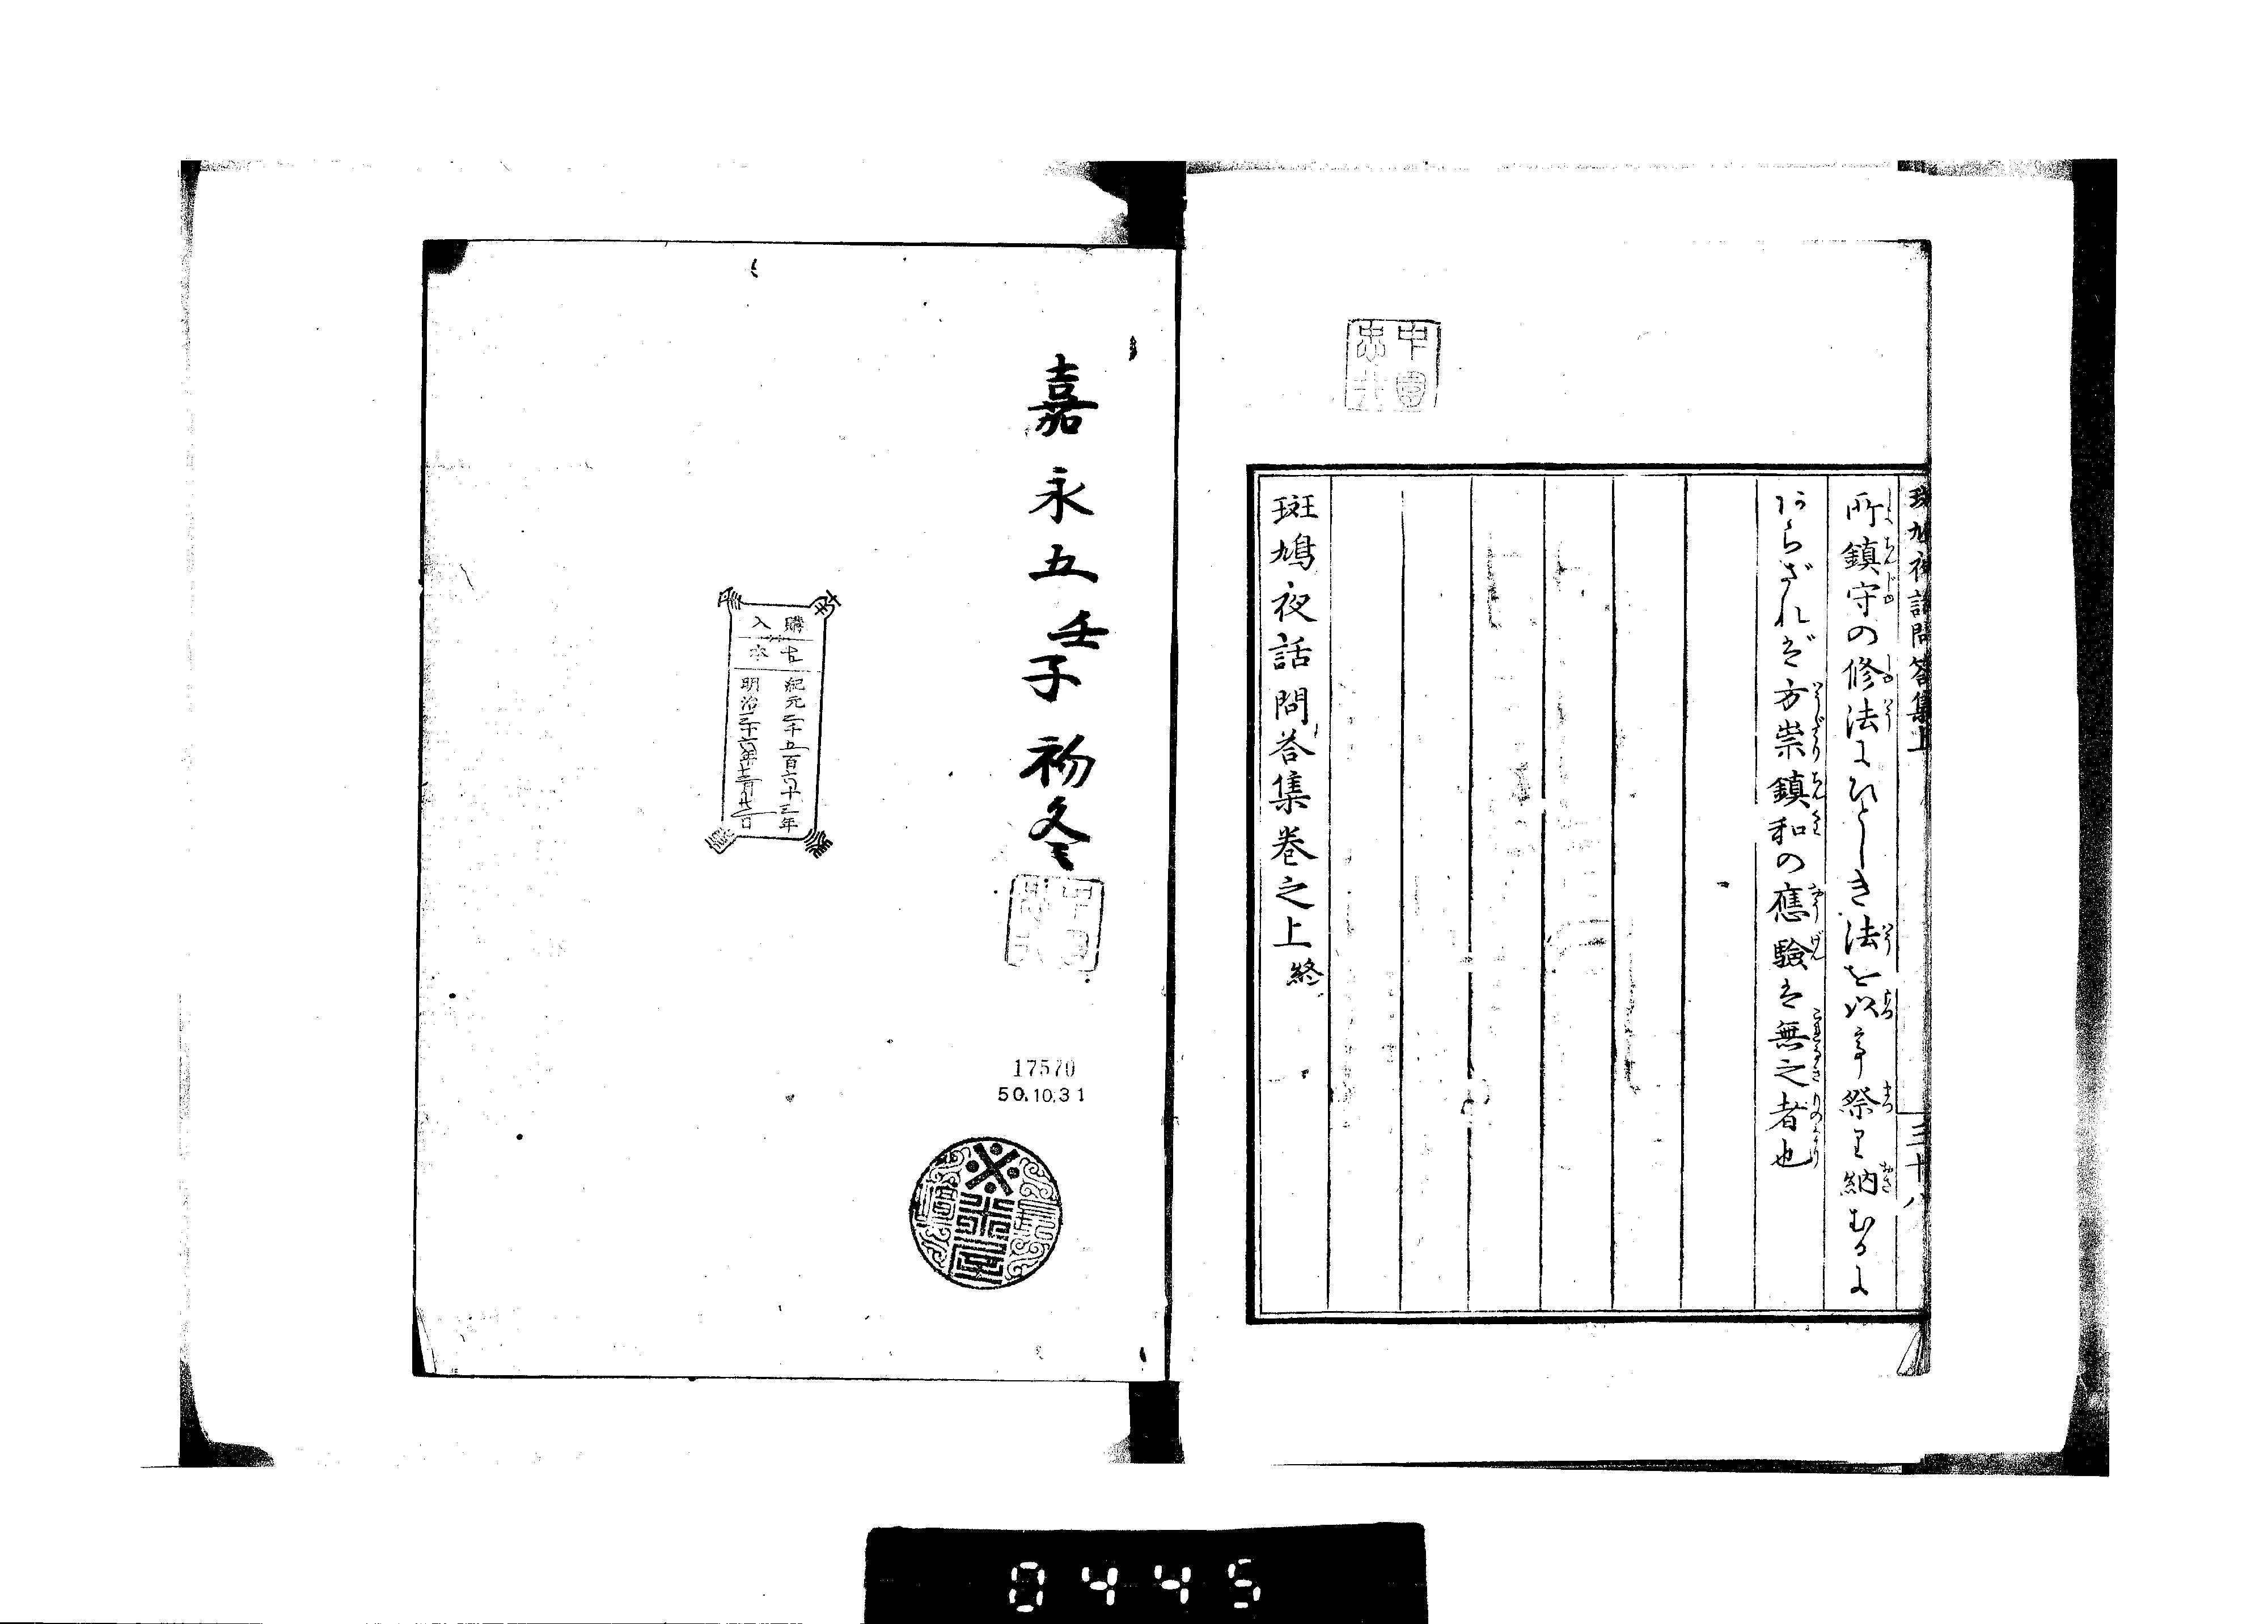 斑鳩夜話問答集上
三十八
所鎮守の修法にひとしき法を以て祭り納むるに
あらざれば方祟鎮和の應験は無之者也
斑鳩夜話問答集卷之上終
嘉永五壬子初冬
購入
古本
紀元二千五百六十三年
明治三十六年十二月廿二日
17570
50.10.31
0445